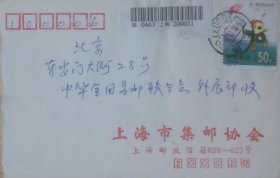 100006
0463 上海 200031
50分
北京
东安门大街28号
中华全国集邮联合会 外展部收
上海市集邮协会
上海邮政信箱020—025号
200020